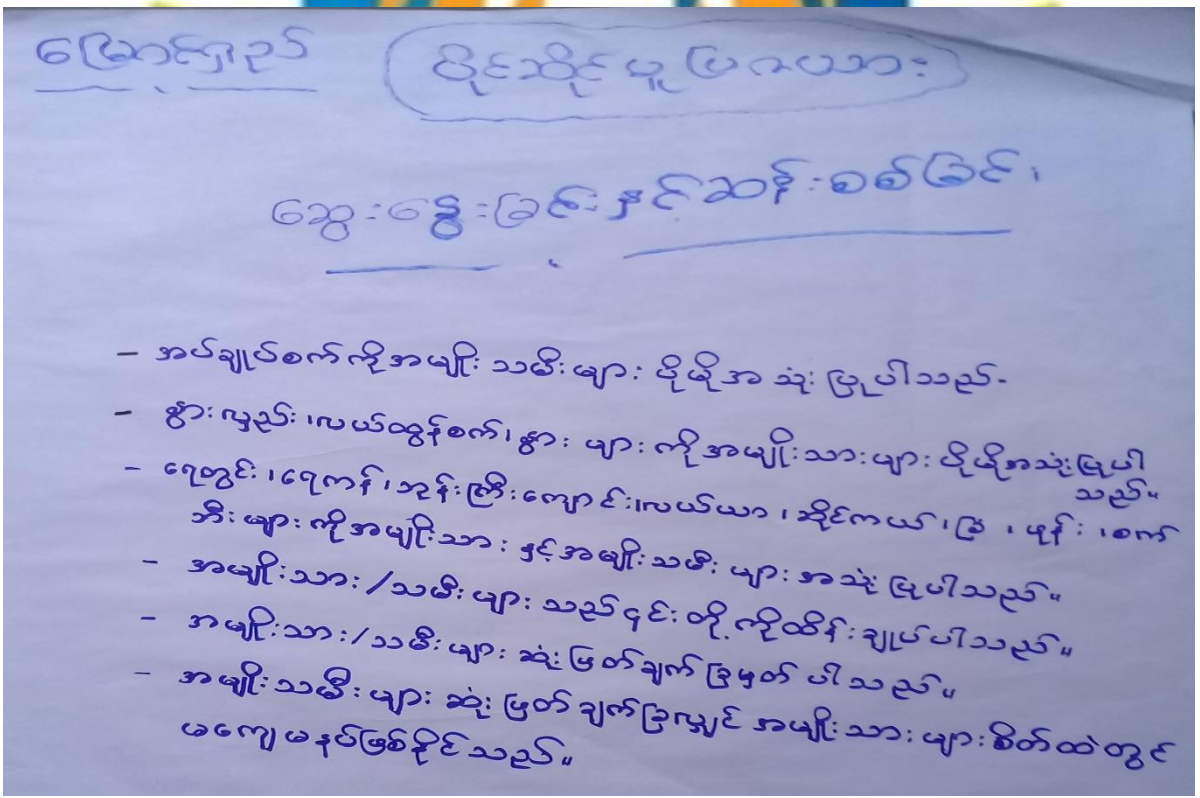 မြောင်ရှည် ပိုင်ဆိုင်မှုပြဇယား
ဆွေးနွေးခြင်းနှင့်ဆန်းစစ်ခြင်း၊
- အပ်ချုပ်စက်ကိုအမျိုးသမီးများ ပိုမိုအသုံးပြုပါသည်-
- နွားလှည်း၊လယ်ထွန်စက်၊နွားများကိုအမျိုးသားများ ပိုမိုအသုံးပြုပါ
သည်။
- ရေတွင်း၊ရေကန်၊ဘုန်းကြီးကျောင်း၊လယ်ယာ၊ဆိုင်ကယ်၊ခြံ၊ဖုန်း၊စက်
ဘီးများကိုအမျိုးသားနှင့်အမျိုးသမီးများအသုံးပြုပါသည်။
- အမျိုးသား/သမီးများသည်၎င်းတို့ကိုထိန်းချုပ်ပါသည်။
- အမျိုးသား/သမီးများဆုံးဖြတ်ချက်ခြမှတ်ပါသည်။
- အမျိုးသမီးများဆုံးဖြတ်ချက်ခြလျှင် အမျိုးသားများစိတ်ထဲတွင်
မကျေမနပ်ဖြစ်နိုင်သည်။